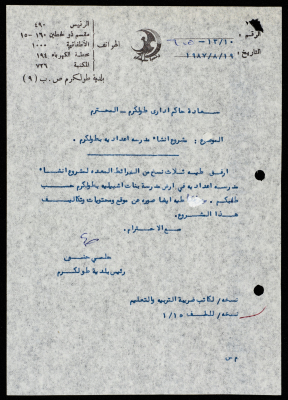 الرئيس ٤٩٠
مقسم ذو خطين ١٦٠-١٥
الهواتف
الأطفائية ١٠٠٠
محطة الكهرباء ١٩٤
المكتبة ٧٣٦
بلدية طولكرم ص.ب (٩)
الرقم:
١٣/١٠
التاريخ: ١٩٨٧/٨/١٩
سعادة حاكم اداري طولكرم - المحترم
الموضوع: مشروع انشاء مدرسة اعدادية بطولكرم.
ارفق طيه ثلاث نسخ من الخرائط المعدة لمشروع انشاء
مدرسة اعدادية في ارض مدرسة بنات بطولكرم حسب
طلبكم. طيه ايضا صورة عن موقع ومحتويات وتكاليف
هذا المشروع.
مع الاحترام.
حلمي حنون
رئيس بلدية طولكرم
نسخة/ لكاتب ضريبة التربية والتعليم
نسخة/ للملف ١/١٥